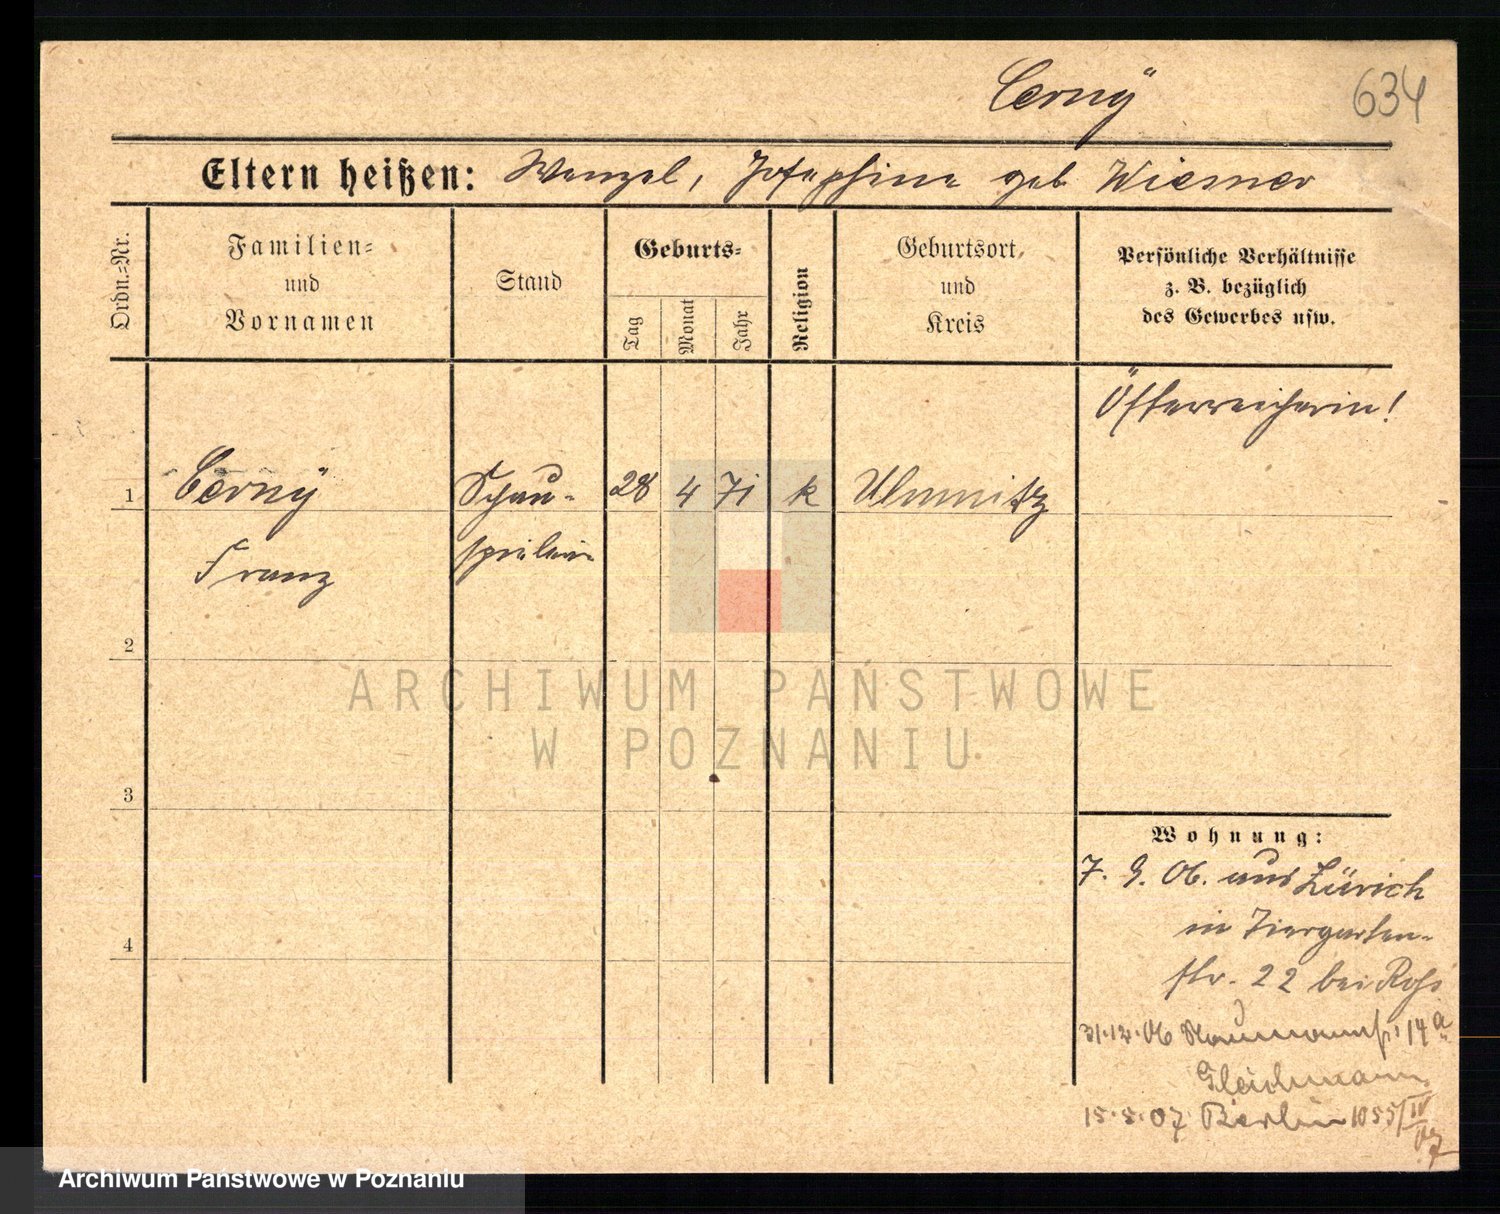 Cerný
634
Eltern heißen: Wenzel, Josephine geb Wiesner
Ordn.-Nr.
Familien-
und
Vornamen
Stand
Geburts-
Tag
Monat
Jahr
Religion
Geburtsort
und
Kreis
Persönliche Verhältnisse
z. B. bezüglich
des Gewerbes usw.
Österreicherin!
1
Cerný
Schau-
28
4
71
k
Franz
2
ARCHIWUM PAŃSTWOWE
W POZNANIU
3
Wohnung:
7. 9. 06. aus Zürich
in Tiergarten-
4
str. 22 bei
31.12.06 14a
Gleichmann
15.5.07 Berlin 1055/IV
07
Archiwum Państwowe w Poznaniu